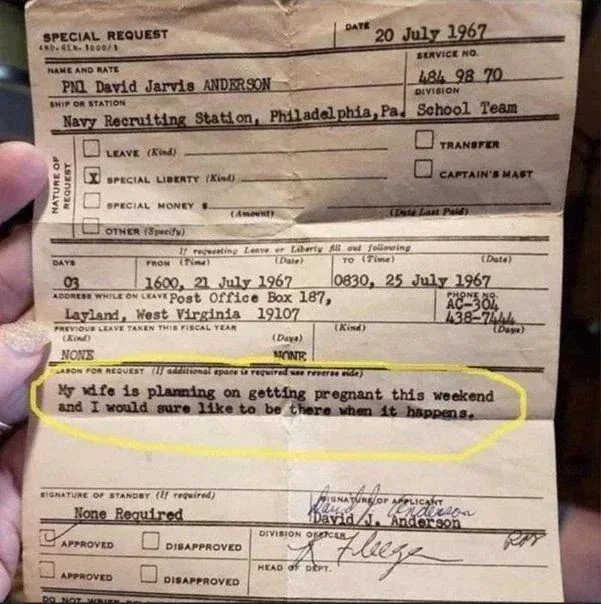 SPECIAL REQUEST
DATE 20 July 1967
SERVICE NO.
NAME AND RATE 484 98 70
PN1 David Jarvis ANDERSON DIVISION
SHIP OR STATION
Navy Recruiting Station, Philadelphia, Pa. School Team
NATURE OF REQUEST
LEAVE (Kind) TRANSFER
X SPECIAL LIBERTY (Kind) CAPTAIN'S MAST
SPECIAL MONEY $ (Amount) (Date Last Paid)
OTHER (Specify)
If requesting Leave or Liberty fill out following
DAYS FROM (Time) (Date) TO (Time) (Date)
03 1600, 21 July 1967 0830, 25 July 1967
ADDRESS WHILE ON LEAVE Post Office Box 187, PHONE NO.
AC-304
Layland, West Virginia 19107 438-7444
PREVIOUS LEAVE TAKEN THIS FISCAL YEAR
(Kind) (Days) (Kind) (Days)
NONE NONE
REASON FOR REQUEST (If additional space is required use reverse side)
My wife is planning on getting pregnant this weekend
and I would sure like to be there when it happens.
SIGNATURE OF STANDBY (If required) SIGNATURE OF APPLICANT
David J. Anderson
None Required David J. Anderson
APPROVED DISAPPROVED DIVISION OFFICER
APPROVED DISAPPROVED HEAD OF DEPT.
DO NOT WRITE